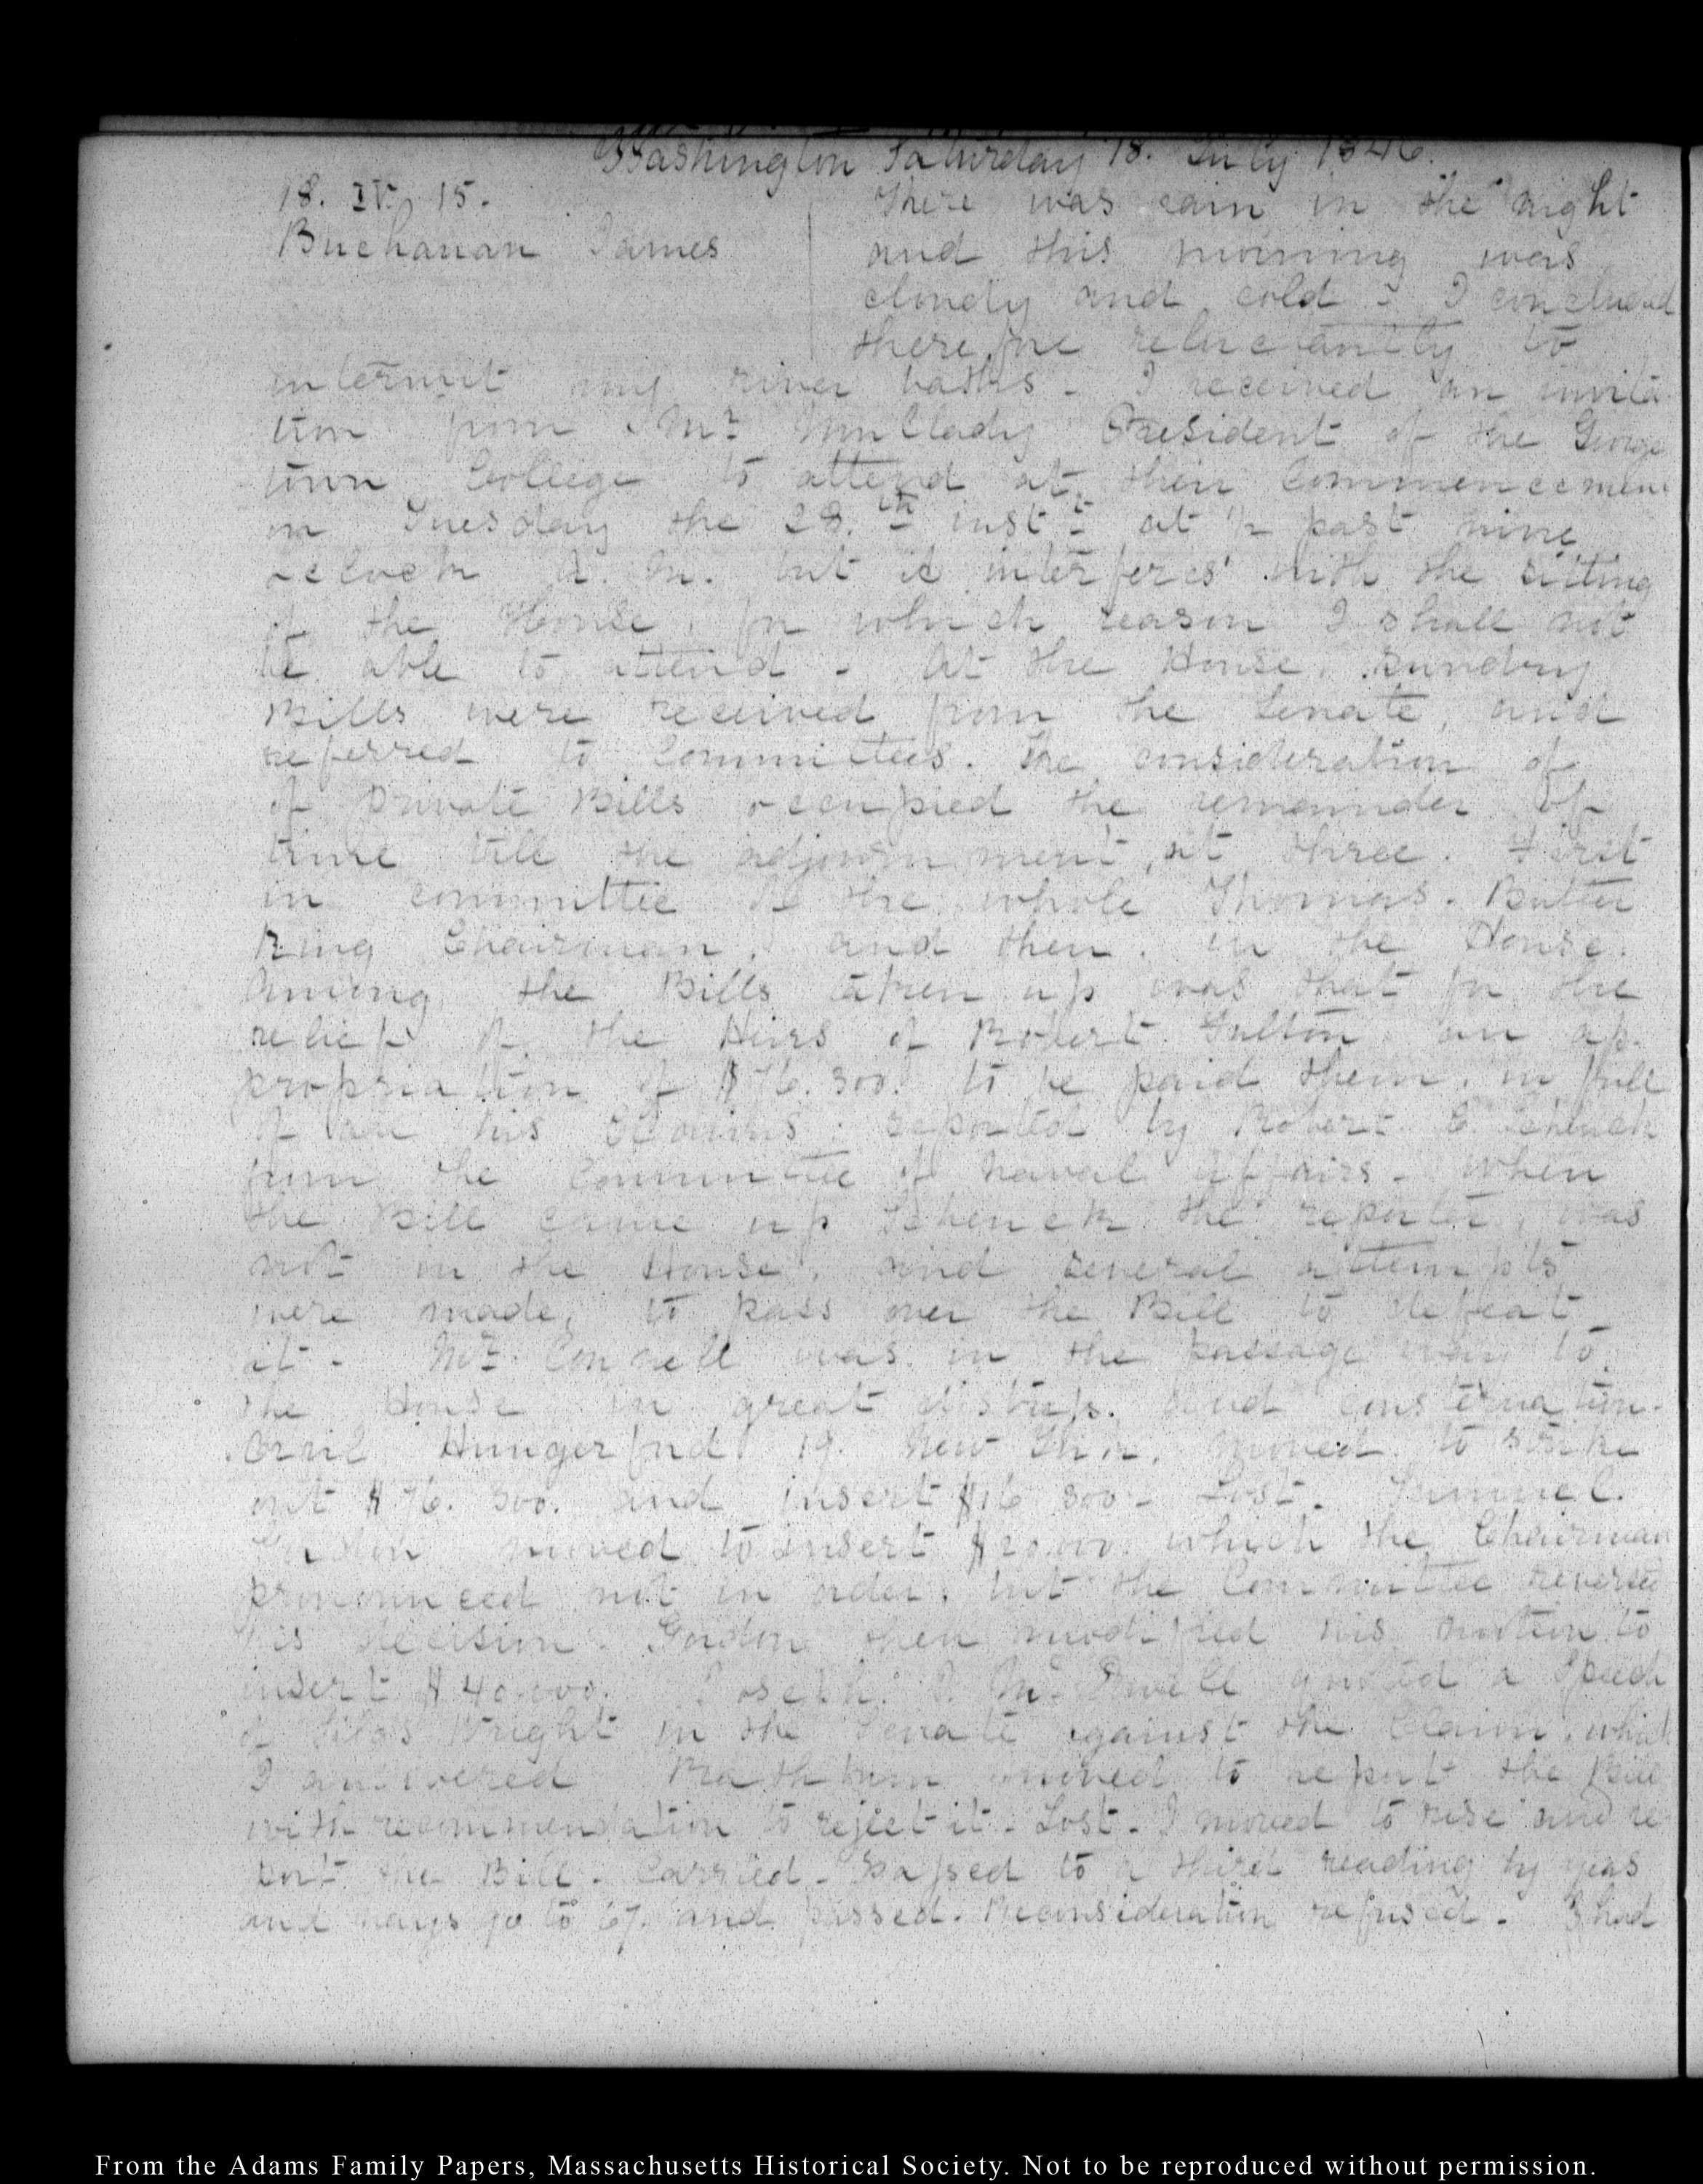 Washington Saturday 18. July 1846.
18. IV. 15.
Buchanan James
There was rain in the night
and this morning was
cloudy and cold - I concluded
therefore reluctantly to
intermit my river baths - I received an invita
tion from Mr. MuClady President of the George
town College to attend at their Commencement
on Tuesday the 28.th instt at 1/2 past nine
oclock A.M. but it interferes with the sitting
of the House, for which reason I shall not
be able to attend - At the House, Sundry
Bills were received from the Senate, and
referred to Committees. The consideration of
of private Bills occupied the remainder of
time till the adjournment, at three. First
in committee of the whole Thomas. Butler
King Chairman, and then, in the House.
Among the Bills taken up was that for the
relief of the Heirs of Robert Fulton an ap-
propriation of $76.300. to be paid them, in full
of all his claims; reported by Robert C. Schenck
from the Committee of naval affairs - When
the Bill came up Schenck the reporter, was
not in the House, and several attempts
were made, to pass over the Bill to defeat
it - Mr. was in the passage way to
the House in great distress and consternation.
Orvil Hungerford 19. New York, moved to strike
out $76.300. and insert $16 300 - Lost. Samuel.
Gordon moved to insert $20.000. which the Chairman
pronounced not in order, but the Committee reversed
his decision. Gordon then modified his motion to
insert $40.000. Joseph. J. McDowell quoted a Speech
of Silas Wright in the Senate against the Claim, which
I answered Rathbun moved to report the Bill
with recommendation to reject it - Lost - I moved to rise and re
port the Bill - Carried - passed to a third reading by yeas
and nays 90 to 67. and passed. Reconsideration refused - I had
From the Adams Family Papers, Massachusetts Historical Society. Not to be reproduced without permission.